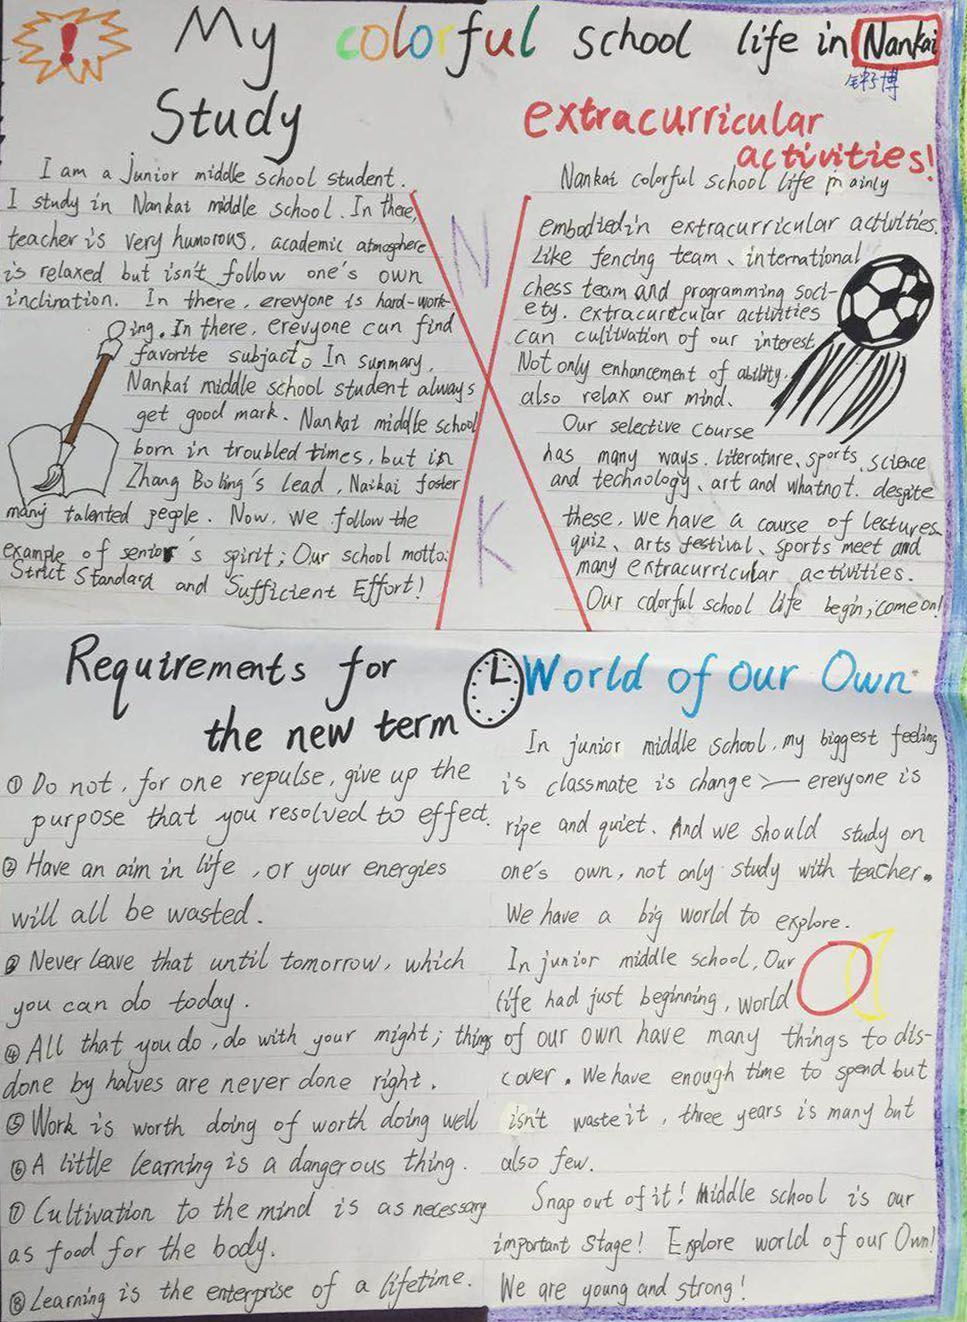 My colorful school life in Nankai
Study
I am a junior middle school student.
I study in Nankai middle school. In there,
teacher is very humorous, academic atmosphere
is relaxed but isn't follow one's own
inclination. In there, erevyone is hard-work-
ing. In there, erevyone can find
favorite subject。In summary,
Nankai middle school student always
get good mark. Nankai middle school
born in troubled times, but in
Zhang Boling's lead, Naikai foster
many talented people. Now, we follow the
example of senior's spirit; Our school motto:
Strict Standard and Sufficient Effort!
N
K
extracurricular
activities!
Nankai colorful school life mainly
embodied in extracurricular activities.
Like fencing team、international
chess team and programming soci-
ety. extracurricular activities
can cultivation of our interest
Not only enhancement of ability,
also relax our mind.
Our selective course
has many ways. literature、sports、science
and technology、art and whatnot. despite
these, we have a course of lectures、
quiz、arts festival、sports meet and
many extracurricular activities.
Our colorful school life begin; come on!
Requirements for
the new term
① Do not, for one repulse, give up the
purpose that you resolved to effect.
② Have an aim in life, or your energies
will all be wasted.
③ Never leave that until tomorrow, which
you can do today.
④ All that you do, do with your might; things
done by halves are never done right.
⑤ Work is worth doing of worth doing well
⑥ A little learning is a dangerous thing.
⑦ Cultivation to the mind is as necessary
as food for the body.
⑧ Learning is the enterprise of a lifetime.
World of our Own
In junior middle school, my biggest feeling
is classmate is change — ereryone is
ripe and quiet. And we should study on
one's own, not only study with teacher.
We have a big world to explore.
In junior middle school, Our
life had just beginning, world
of our own have many things to dis-
cover. We have enough time to spend but
isn't waste it, three years is many but
also few.
Snap out of it! Middle school is our
important stage! Explore world of our Own!
We are young and strong!